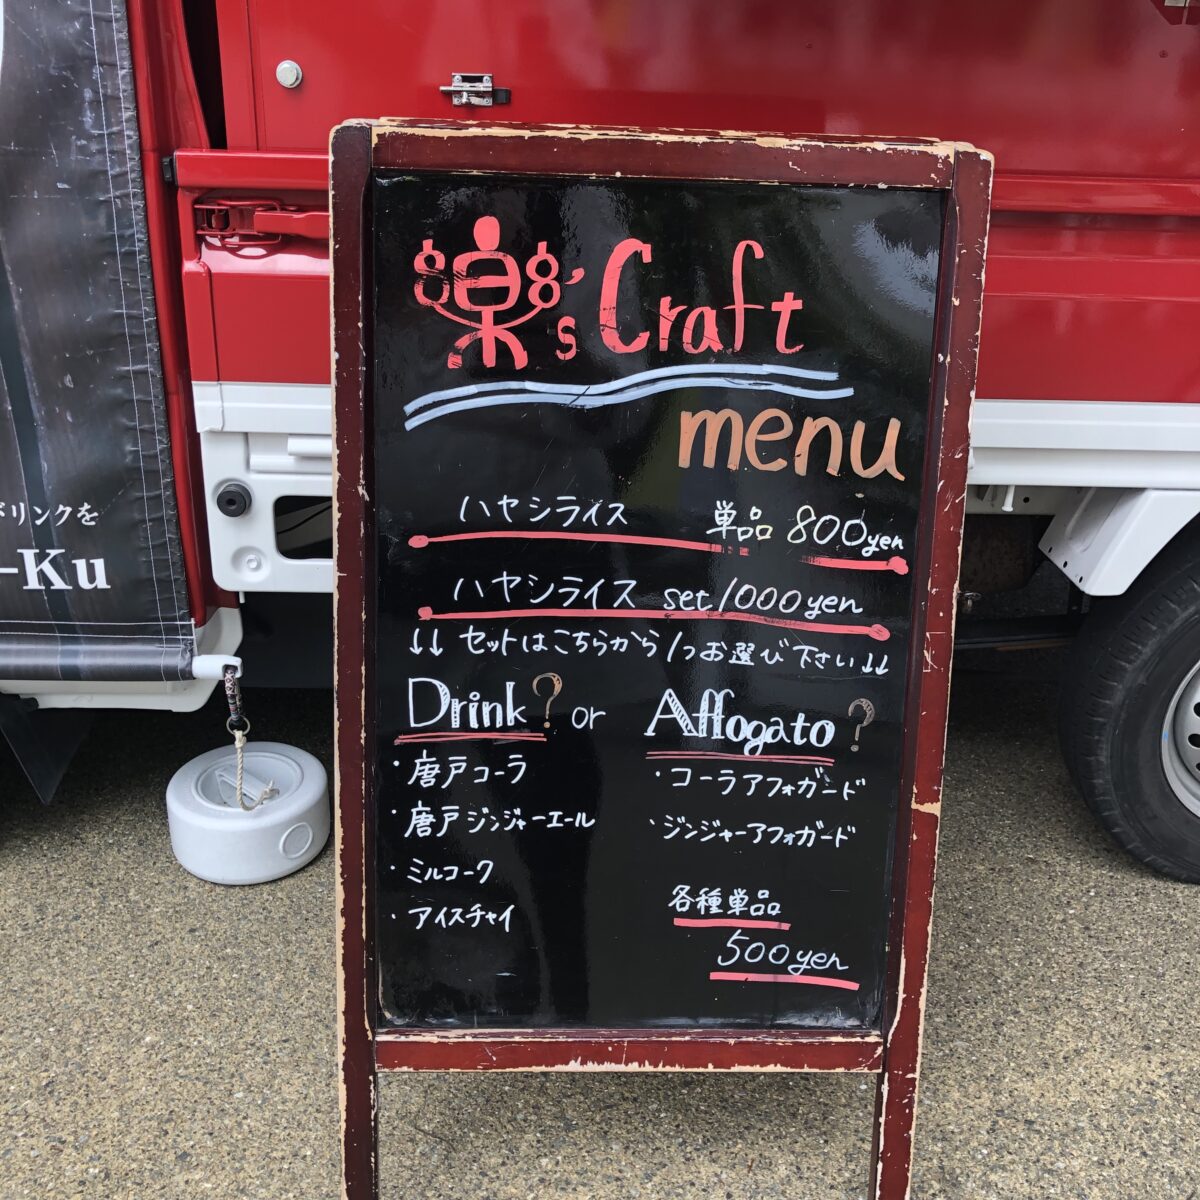 楽's Craft
menu
ハヤシライス 単品 800yen
ハヤシライス set 1000yen
↓↓ セットはこちらから1つお選び下さい↓↓
Drink? or Affogato?
・唐戸コーラ
・唐戸ジンジャーエール
・ミルコーク
・アイスチャイ
・コーラアフォガード
・ジンジャーアフォガード
各種単品
500yen
ドリンクを
-Ku